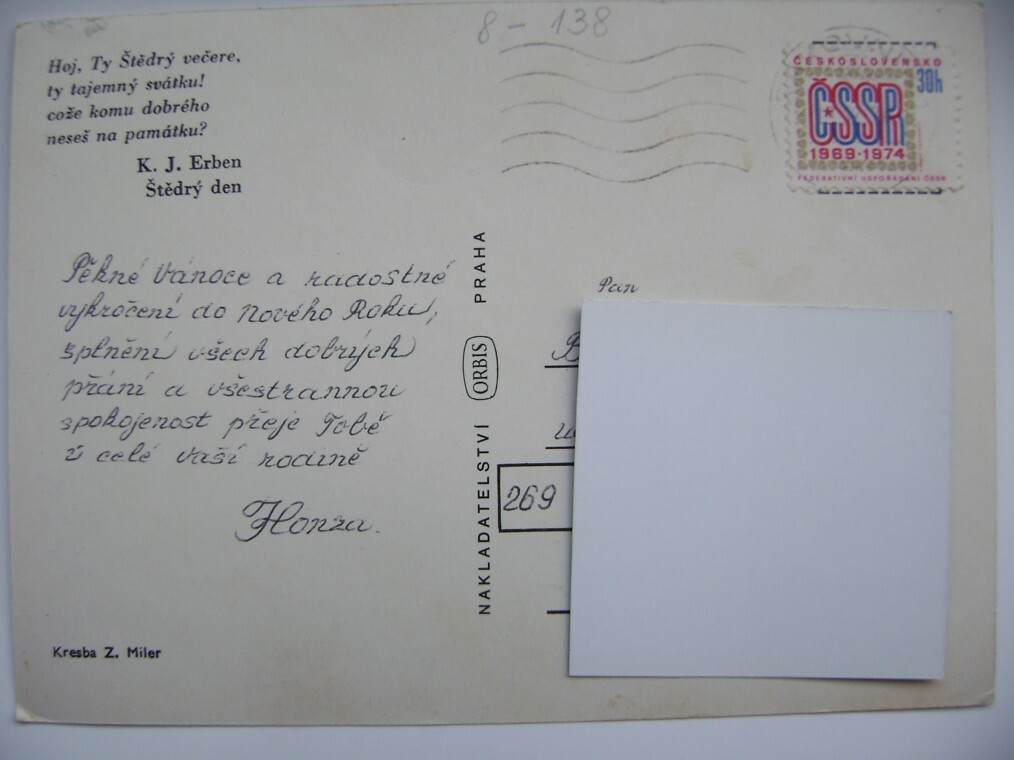 8 - 138
Hoj, Ty Štědrý večere,
ty tajemný svátku!
cože komu dobrého
neseš na památku?
K. J. Erben
Štědrý den
ČESKOSLOVENSKO
30h
ČSSR
1969-1974
FEDERATIVNÍ USPOŘÁDÁNÍ ČSSR
Pěkné Vánoce a radostné
vykročení do Nového Roku,
splnění všech dobrých
přání a všestrannou
spokojenost přeje Tobě
i celé vaší rodině
Honza.
NAKLADATELSTVÍ ORBIS PRAHA
Pan
269
Kresba Z. Miler